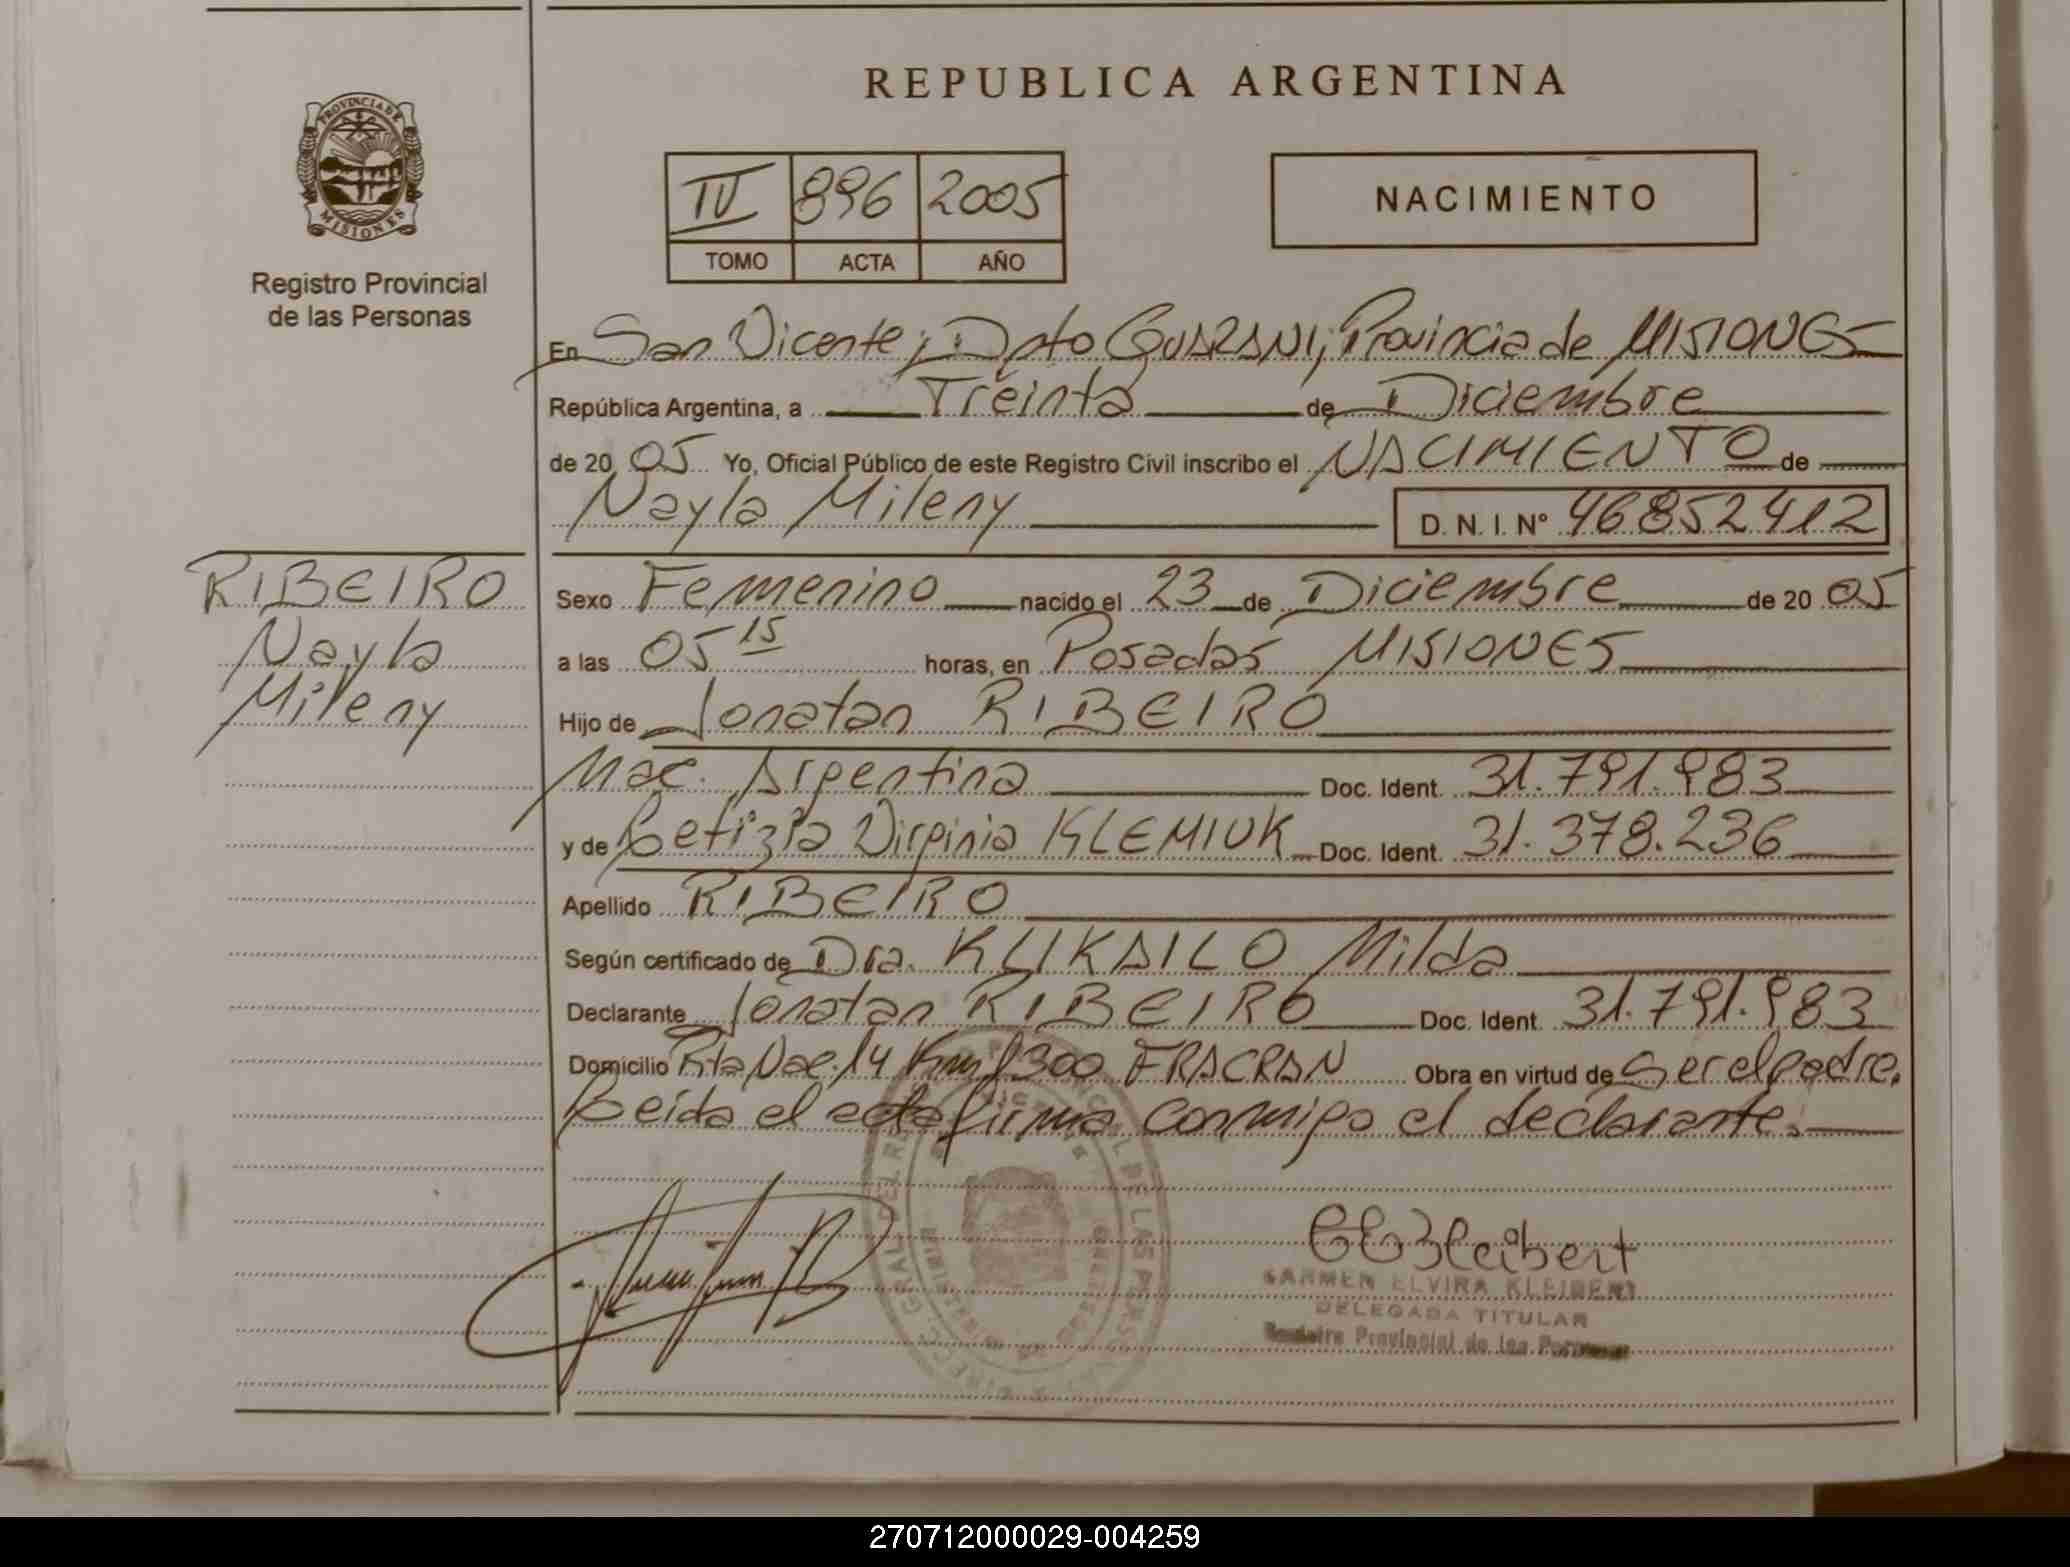 REPUBLICA ARGENTINA
PROVINCIA DE
MISIONES
Registro Provincial
de las Personas
IV 896 2005
TOMO ACTA AÑO
NACIMIENTO
En San Vicente; Dpto GUARANI; Provincia de MISIONES
República Argentina, a Treinta de Diciembre
de 20 05 Yo, Oficial Público de este Registro Civil inscribo el NACIMIENTO de
Nayla Mileny D. N. I. Nº 46852412
RIBEIRO
Nayla
Mileny
Sexo Femenino nacido el 23 de Diciembre de 20 05
a las 05 15 horas, en Posadas MISIONES
Hijo de Jonatan RIBEIRO
Nac. Argentina Doc. Ident. 31.791.983
y de Letizia Virginia KLEMIUK Doc. Ident. 31.378.236
Apellido RIBEIRO
Según certificado de Dra. Milda
Declarante Jonatan RIBEIRO Doc. Ident. 31.791.983
Domicilio Rta Nac. 14 Km 1300 FRACRAN Obra en virtud de ser el padre.
Leida el acta firma conmigo el declarante.
CARMEN ELVIRA KLEIBERT
DELEGADA TITULAR
Registro Provincial de las Personas
270712000029-004259